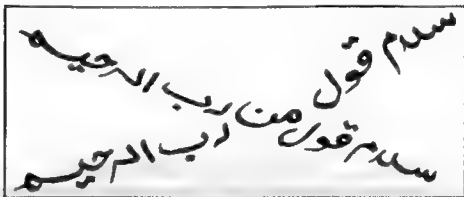 سلام قول من رب الرحيم
سلام قول من رب الرحيم